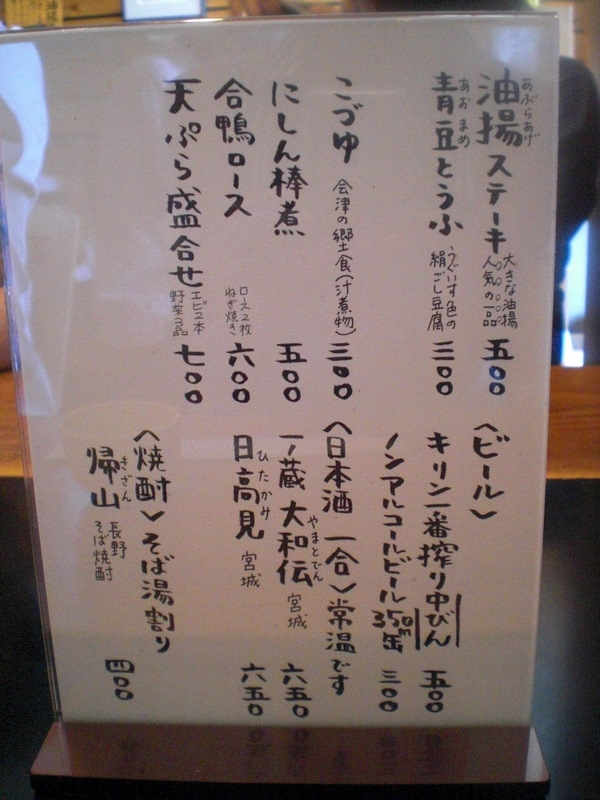 油揚ステーキ 大きな油揚 人気の一品 五〇〇
あぶらあげ
青豆とうふ うぐいす色の 絹ごし豆腐 三〇〇
あおまめ
こづゆ 会津の郷土食(汁煮物) 三〇〇
にしん棒煮 五〇〇
合鴨ロース ロース2枚 ねぎ焼き 六〇〇
天ぷら盛合せ エビ2本 野菜3品 七〇〇
〈ビール〉
キリン一番搾り中びん 五〇〇
ノンアルコールビール350ml缶 三〇〇
〈日本酒 一合〉常温です
一ノ蔵 大和伝 宮城 六五〇
やまとでん
日高見 宮城 六五〇
ひたかみ
〈焼酎〉そば湯割り
帰山 長野 そば焼酎 四〇〇
きざん